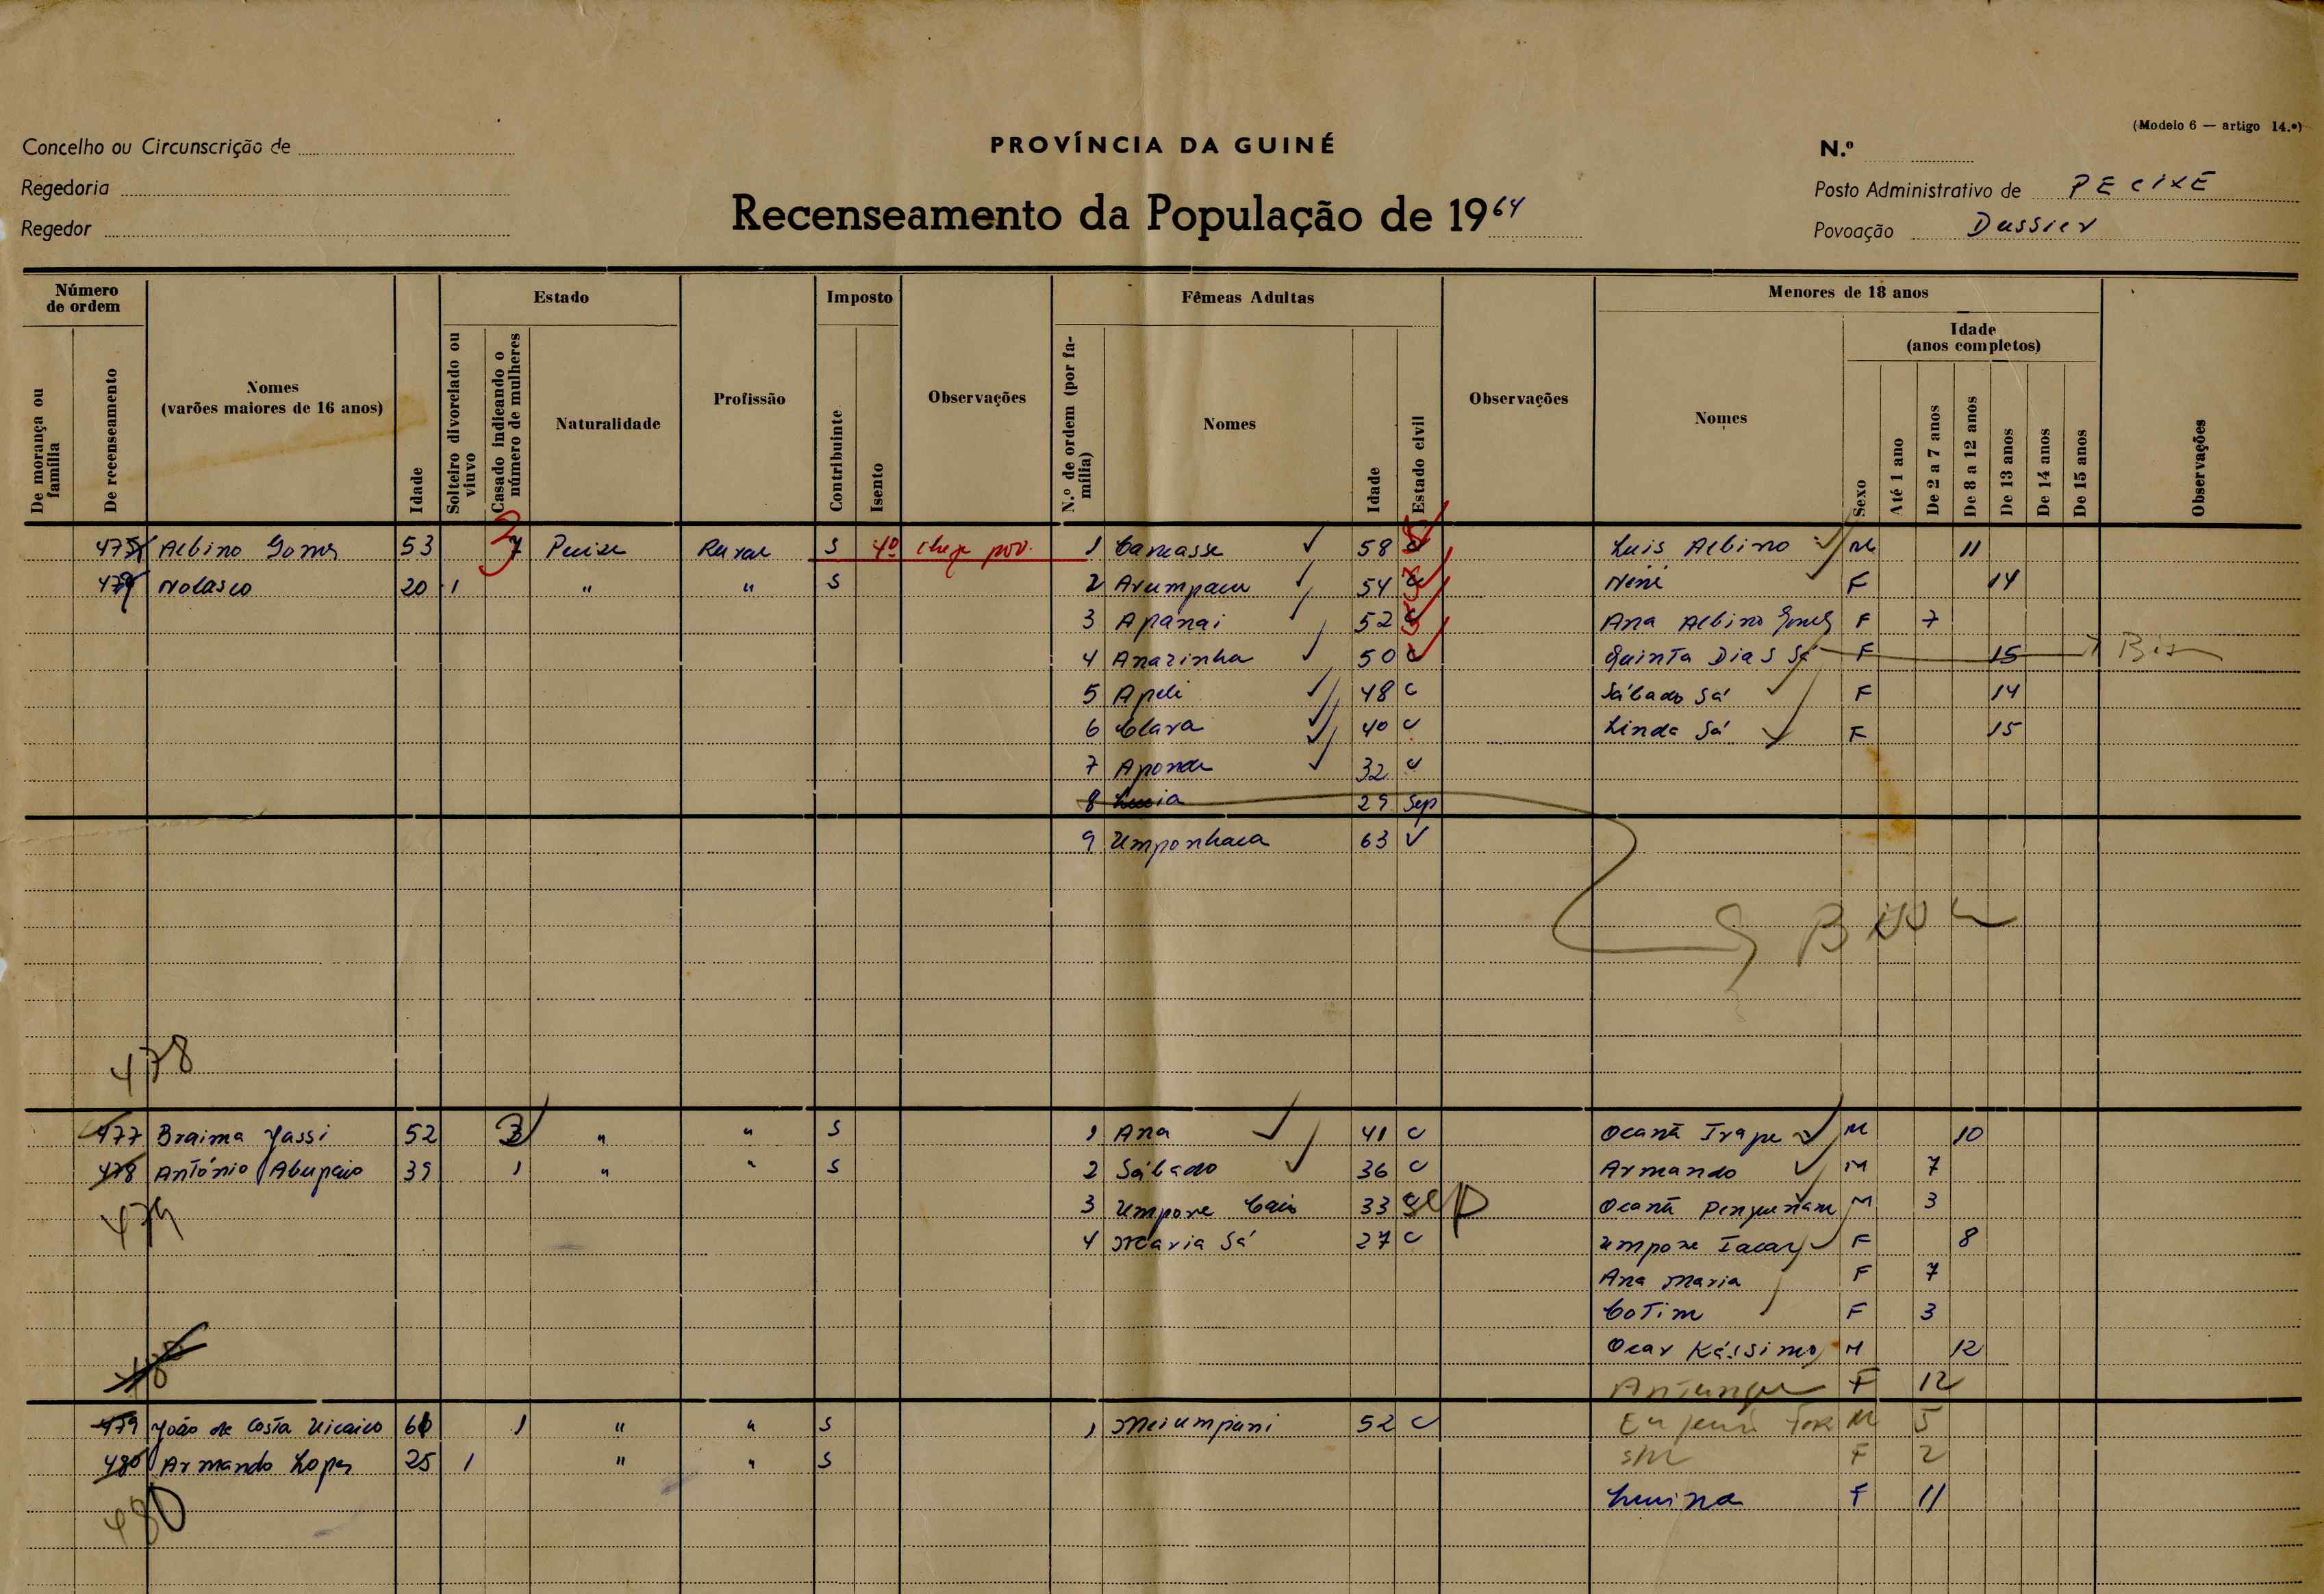 (Modelo 6 — artigo 14.º)
Concelho ou Circunscrição de
PROVÍNCIA DA GUINÉ
N.º
Regedoria
Posto Administrativo de PECIXE
Regedor
Recenseamento da População de 1964
Povoação
Número de ordem
Estado
Imposto
Fêmeas Adultas
Menores de 18 anos
Idade (anos completos)
De morança ou família
De recenseamento
Nomes (varões maiores de 16 anos)
Idade
Solteiro divorciado ou viuvo
Casado indicando o número de mulheres
Naturalidade
Profissão
Contribuinte
Isento
Observações
N.º de ordem (por família)
Nomes
Idade
Estado civil
Observações
Nomes
Sexo
Até 1 ano
De 2 a 7 anos
De 8 a 12 anos
De 13 anos
De 14 anos
De 15 anos
Observações
Albino Gomes 53 7 Rural S 1 58 C Luis Albino M 11
Nolasco 20 1 " " S 2 54 Néné F 14
3 Apanai 52 C Ana Albino Gomes F 7
4 Anazinha 50 C Quinta Dias Sá F 15
5 Apili 48 C Sábado Sá F 14
6 Clara 40 C Linda Sá F 15
7 32 C
8 29 Sep
9 63 V
478
477 Braima Jassi 52 " " S 1 Ana 41 C M 10
478 António 39 1 " " S 2 Sábado 36 C Armando M 7
479 3 Umpone 33 Sep M 3
4 Maria Sá 27 C Umpone F 8
Ana Maria F 7
Cotim F 3
Ocar Kássimo M 12
F 12
479 João da Costa 1 " " S 1 52 C M 5
480 Armando Lopes 25 1 " " S F 2
480 F 11